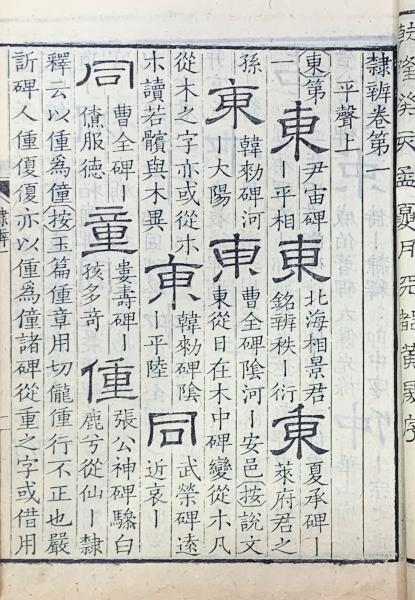 乾隆癸亥孟夏月天都黃晟序
隸辨卷第一
平聲上
東第一 東 尹宙碑｜平相 東 北海相景君銘辨秩｜衍 東 夏承碑｜萊府君之
孫 東 韓勑碑河｜大陽 東 曹全碑陰河｜安邑按說文東從日在木中碑變從木凡
從木之字亦或從朩朩讀若髕與木異 東 韓勑碑陰｜平陸 同 武榮碑遠近哀｜
同 曹全碑｜儻服德 童 婁壽碑｜孩多奇 偅 張公神碑驂白鹿兮從仙｜隸
釋云以偅為僮按玉篇偅章用切儱偅行不正也嚴
訢碑人偅優優亦以偅為僮諸碑從重之字或借用
隸辨